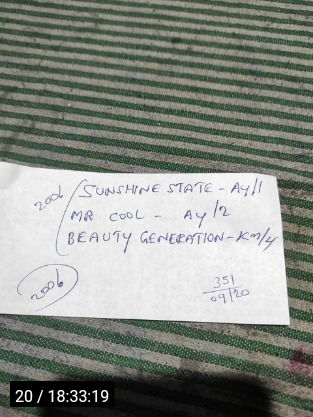 2006
SUNSHINE STATE - AY/1
MR COOL - AY/2
BEAUTY GENERATION - KM/4
2006
351
09/20
20 / 18:33:19